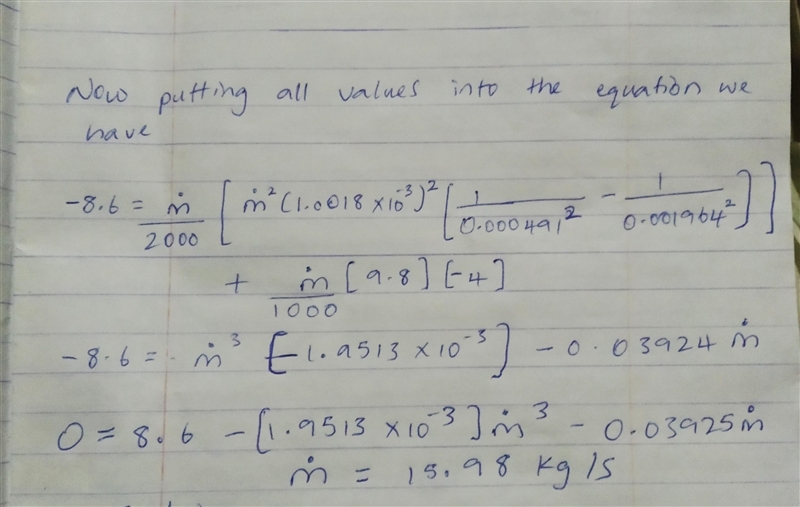 Now putting all values into the equation we
have
-8.6 = ṁ/2000 [ ṁ² (1.0018 × 10⁻³)² [ 1/0.000491² - 1/0.001964² ] ]
+ ṁ/1000 [9.8] [-4]
-8.6 = ṁ³ [-1.9513 × 10⁻³] - 0.03924 ṁ
0 = 8.6 - [1.9513 × 10⁻³] ṁ³ - 0.03925 ṁ
ṁ = 15.98 kg/s